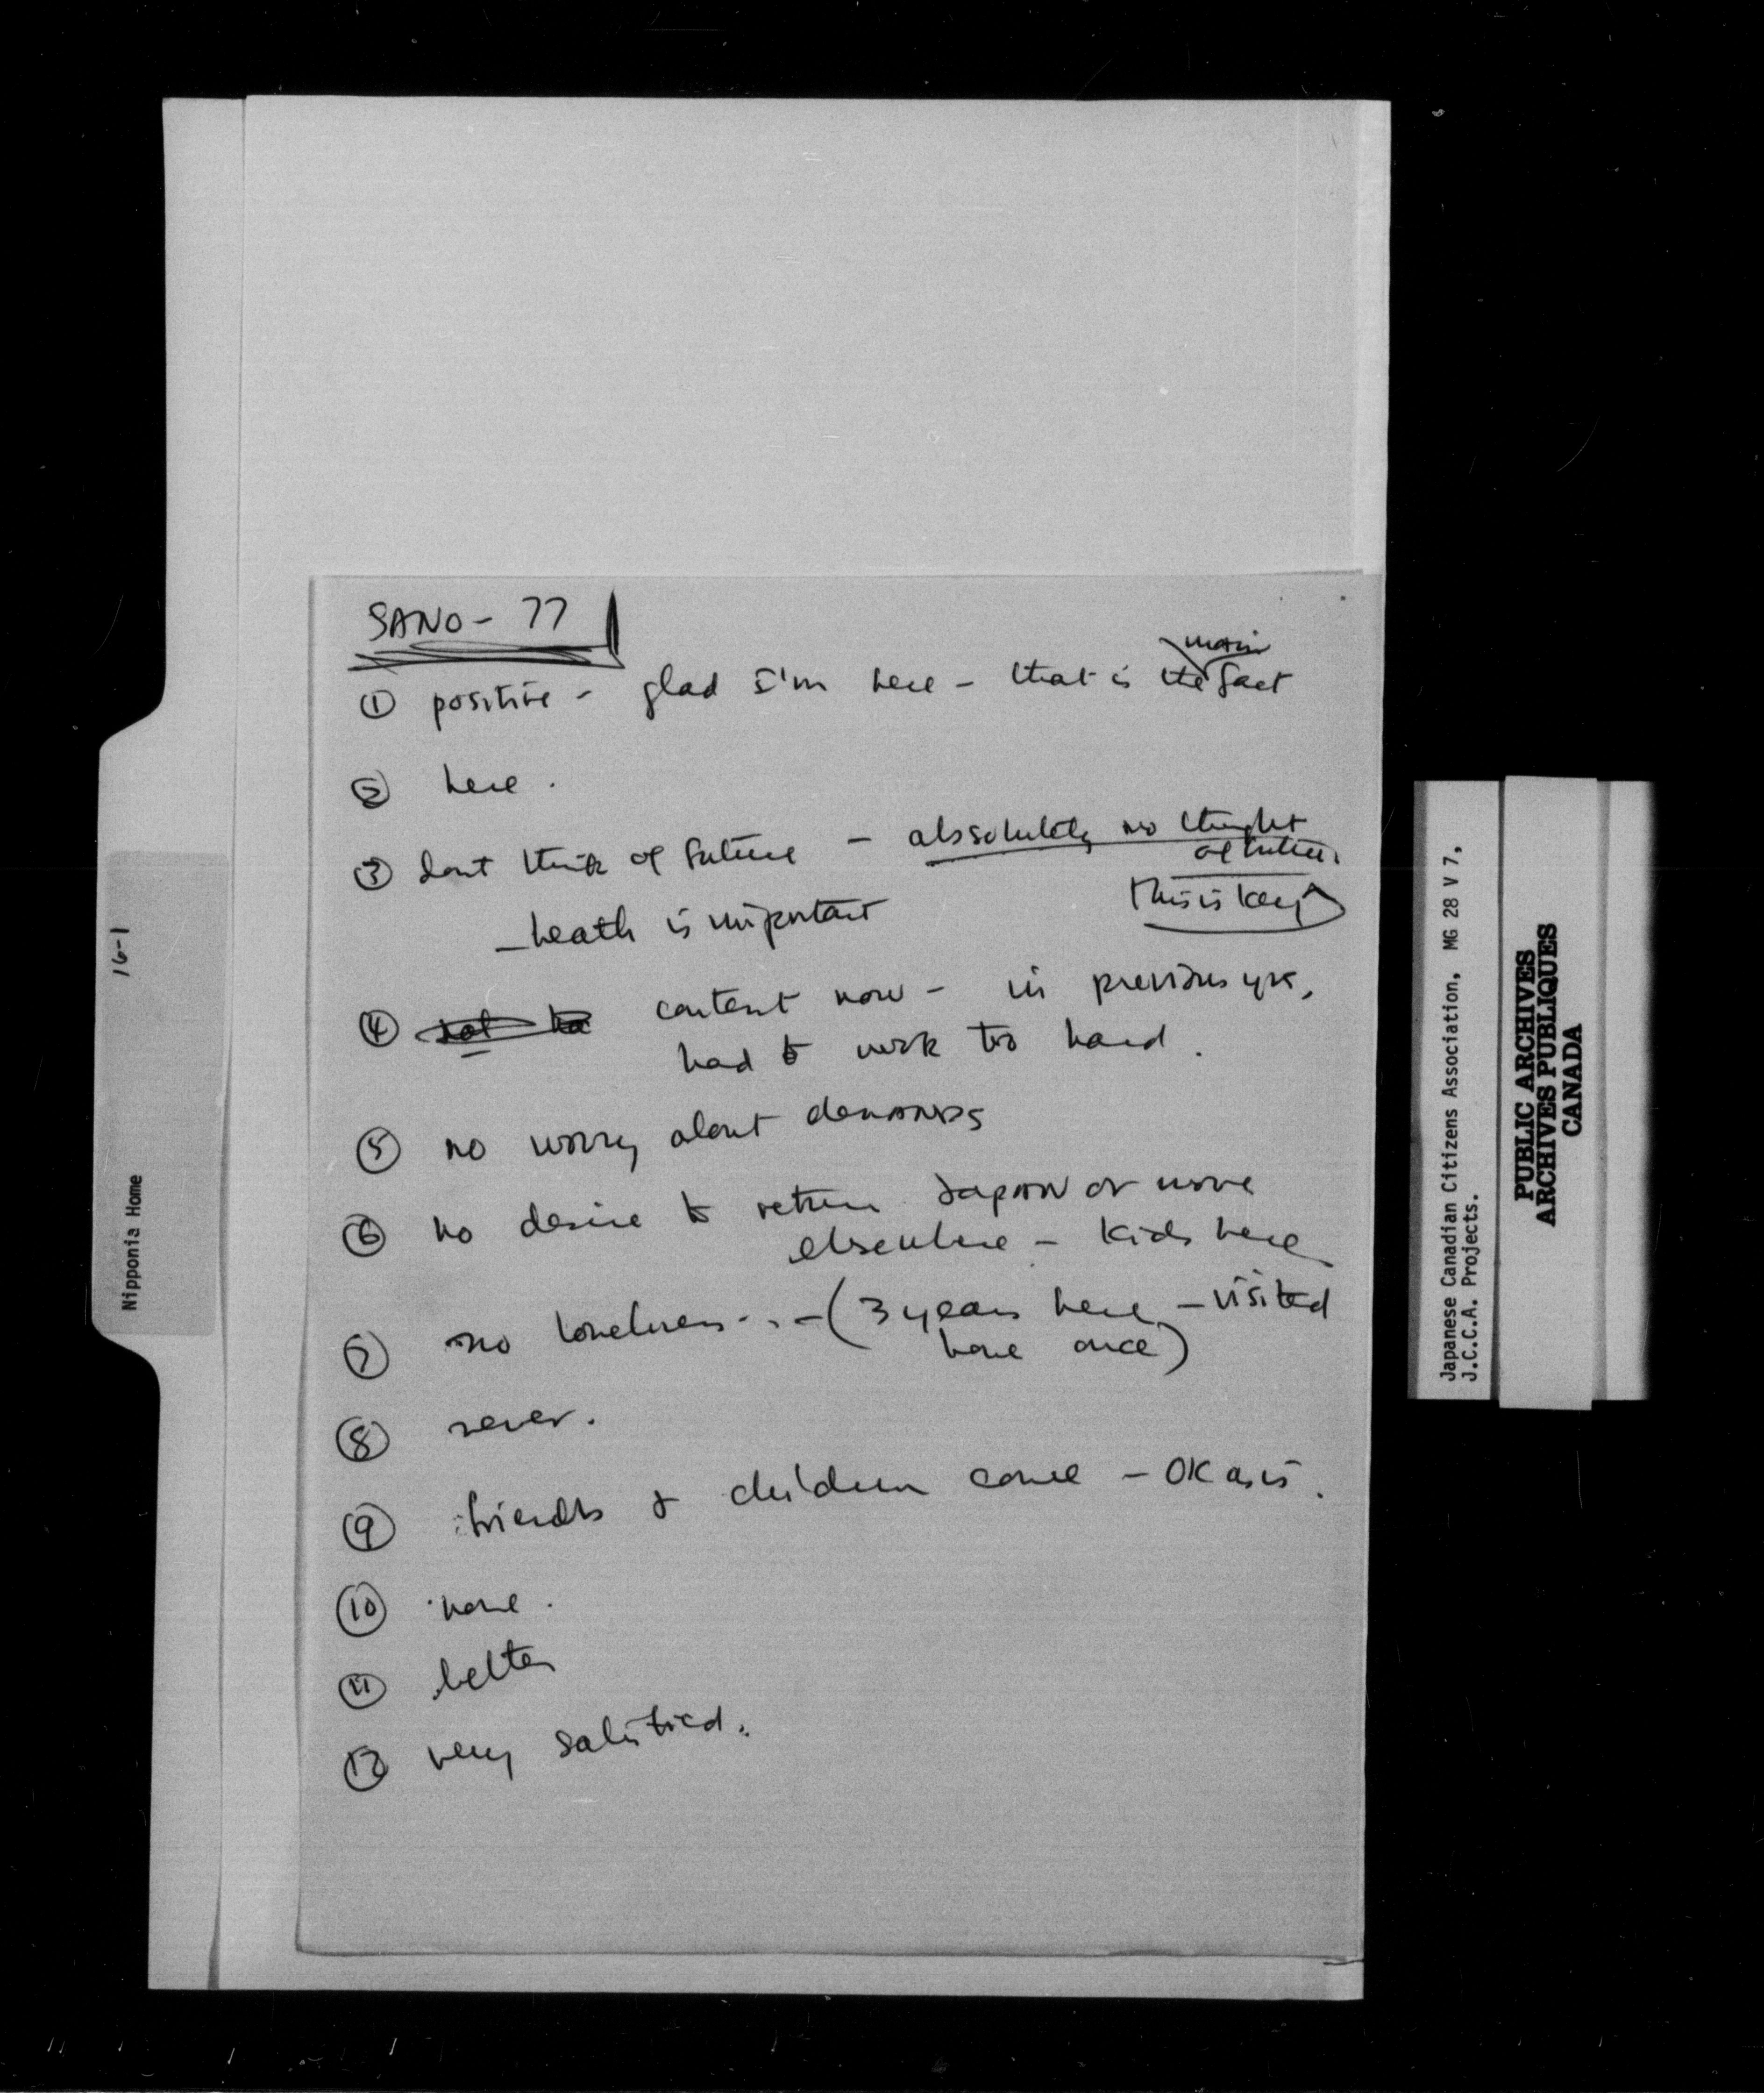 SANO - 77
main
① positive - glad I'm here - that is the fact
② here.
③ dont think of future - abssolutely no thought
of future.
this is key
- heath is important
④ content now - in previous yrs,
had to work too hard.
⑤ no worry about
⑥ no desire to return Japan or move
elsewhere - kids here
⑦ no loneliness - (3 years here - visited
home once)
⑧ never.
⑨ friends & children come - OK as is.
⑩ none.
⑪ better
⑫ very satisfied.
16-1
Nipponia Home
Japanese Canadian Citizens Association, MG 28 V 7,
J.C.C.A. Projects.
PUBLIC ARCHIVES
ARCHIVES PUBLIQUES
CANADA